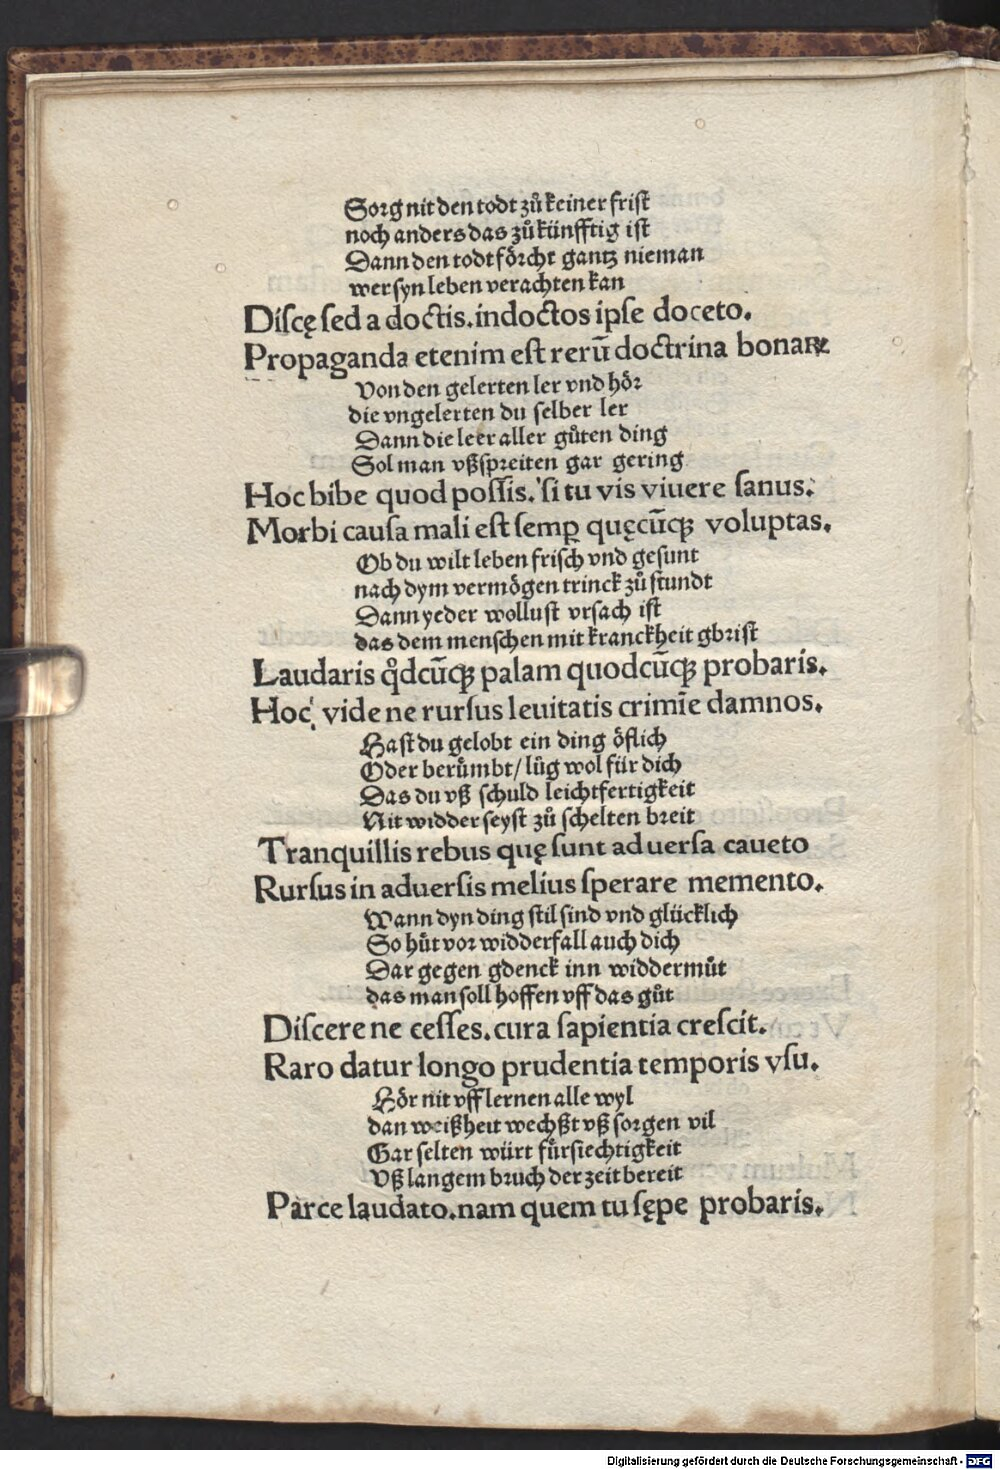 Sorg nit den todt zů keiner frist
noch anders das zů künfftig ist
Dann den todt förcht gantz nieman
wer syn leben verachten kan
Diſcę ſed a doctis. indoctos ipſe doceto.
Propaganda etenim eſt rerū doctrina bonaꝝ
Von den gelerten ler vnd hör
die vngelerten du ſelber ler
Dann die leer aller gůten ding
Sol man vßſpreiten gar gering
Hoc bibe quod poſſis. ſi tu vis viuere ſanus.
Morbi cauſa mali eſt ſemꝑ quęcūcꝫ voluptas.
Ob du wilt leben friſch vnd geſunt
nach dym vermögen trinck zů ſtundt
Dann yeder wolluſt vrſach iſt
das dem menſchen mit kranckheit gbriſt
Laudaris qͦdcūcꝫ palam quodcūcꝫ probaris.
Hoc vide ne rurſus leuitatis crimīe damnos.
Haſt du gelobt ein ding öflich
Oder berůmbt/ lůg wol für dich
Das du vß ſchuld leichtfertigkeit
Nit widder ſeyſt zů ſchelten breit
Tranquillis rebus quę ſunt aduerſa caueto
Rurſus in aduerſis melius ſperare memento.
Wann dyn ding ſtil ſind vnd glücklich
So hůt vor widderfall auch dich
Dar gegen gdenck inn widdermůt
das man ſoll hoffen vff das gůt
Diſcere ne ceſſes. cura ſapientia creſcit.
Raro datur longo prudentia temporis vſu.
Hör nit vff lernen alle wyl
dan weißheit wechßt vß ſorgen vil
Gar ſelten würt fürſiechtigkeit
Vß langem bruch der zeit bereit
Parce laudato. nam quem tu ſępe probaris.
Digitalisierung gefördert durch die Deutsche Forschungsgemeinschaft - DFG